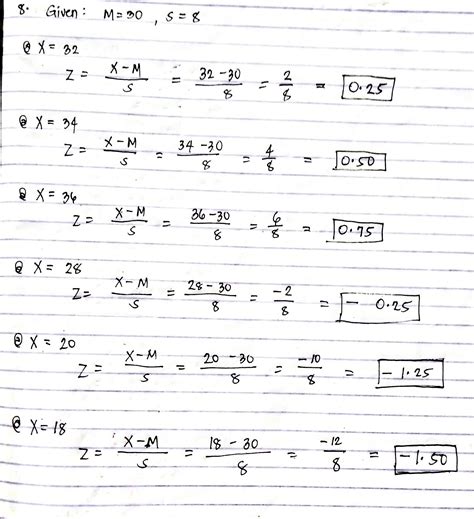 8. Given: M=30, S=8
@ X = 32
Z = X-M/S = 32-30/8 = 2/8 = 0.25
@ X = 34
Z = X-M/S = 34-30/8 = 4/8 = 0.50
@ X = 36
Z = X-M/S = 36-30/8 = 6/8 = 0.75
@ X = 28
Z = X-M/S = 28-30/8 = -2/8 = -0.25
@ X = 20
Z = X-M/S = 20-30/8 = -10/8 = -1.25
@ X = 18
Z = X-M/S = 18-30/8 = -12/8 = -1.50